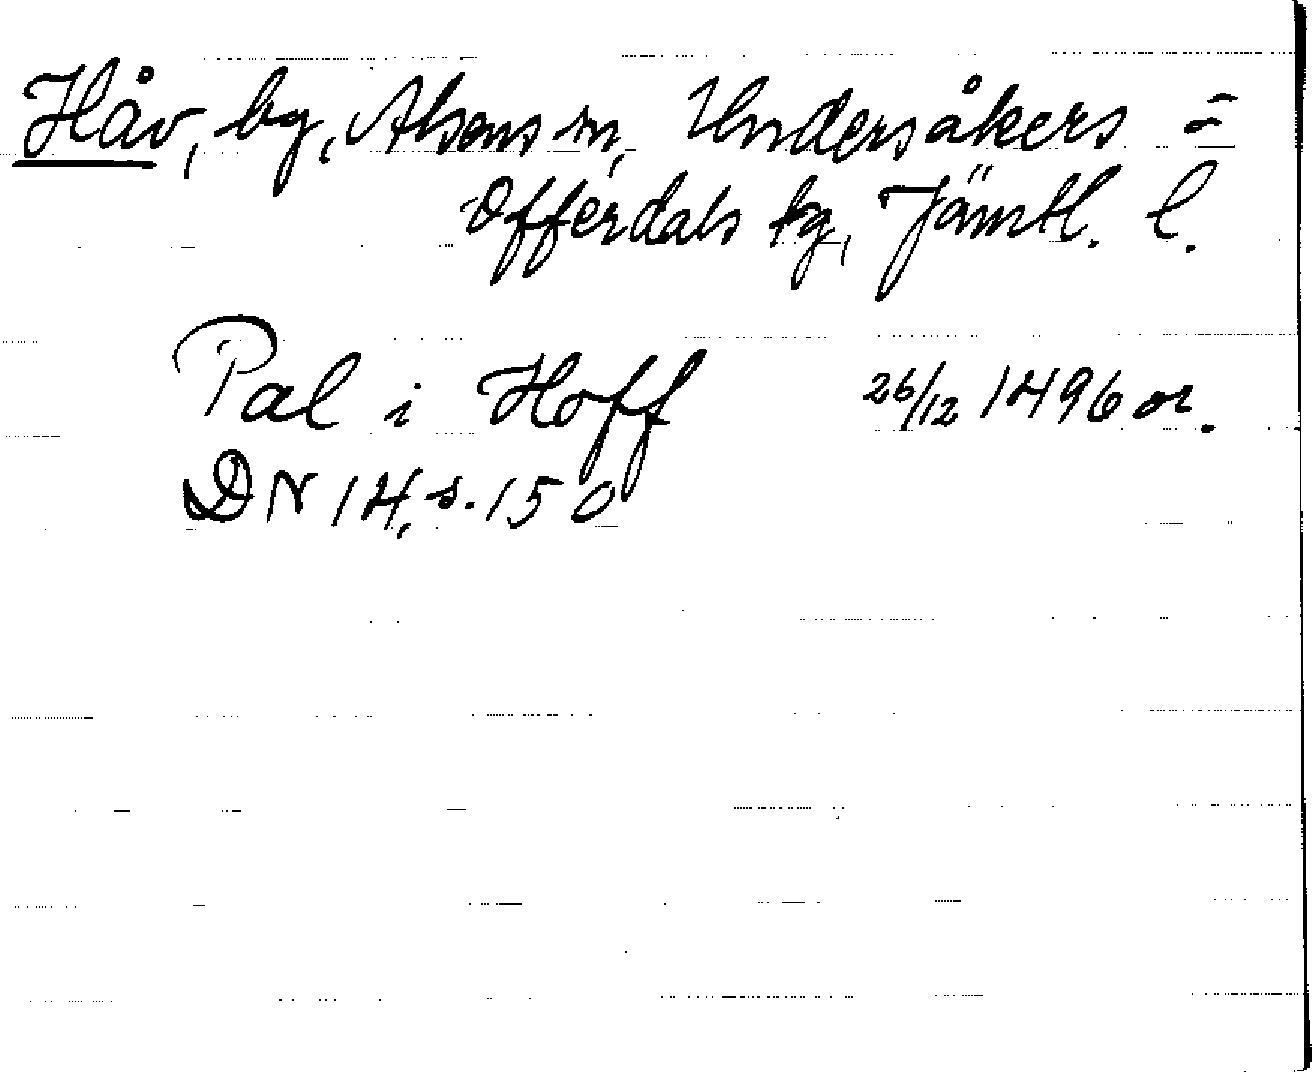 Håv, by, Alsens sn, Undersåkers =
Offerdals tg, Jämtl. l.
Pal i Hoff 26/12 1496 or.
DN 14, s. 150